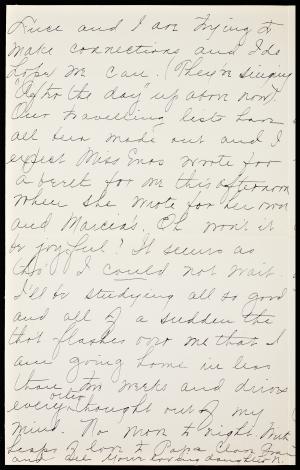 Luce and I are trying to
make connections and I do
hope we can. (They're singing
"Oh the day" up above now)
Our travelling lists have
all been made out and I
expect Miss Enos wrote for
a beret for me this afternoon
when she wrote for her own
and Marcia's. Oh won't it
be joyful? It seems as
tho' I could not wait.
I'll be studying all so good
and all of a sudden the
thot flashes over me that I
am going home in less
than two weeks and drives
every other thought out of my
mind. No more to night. With
heaps of love to Papa
and all your loving daughter